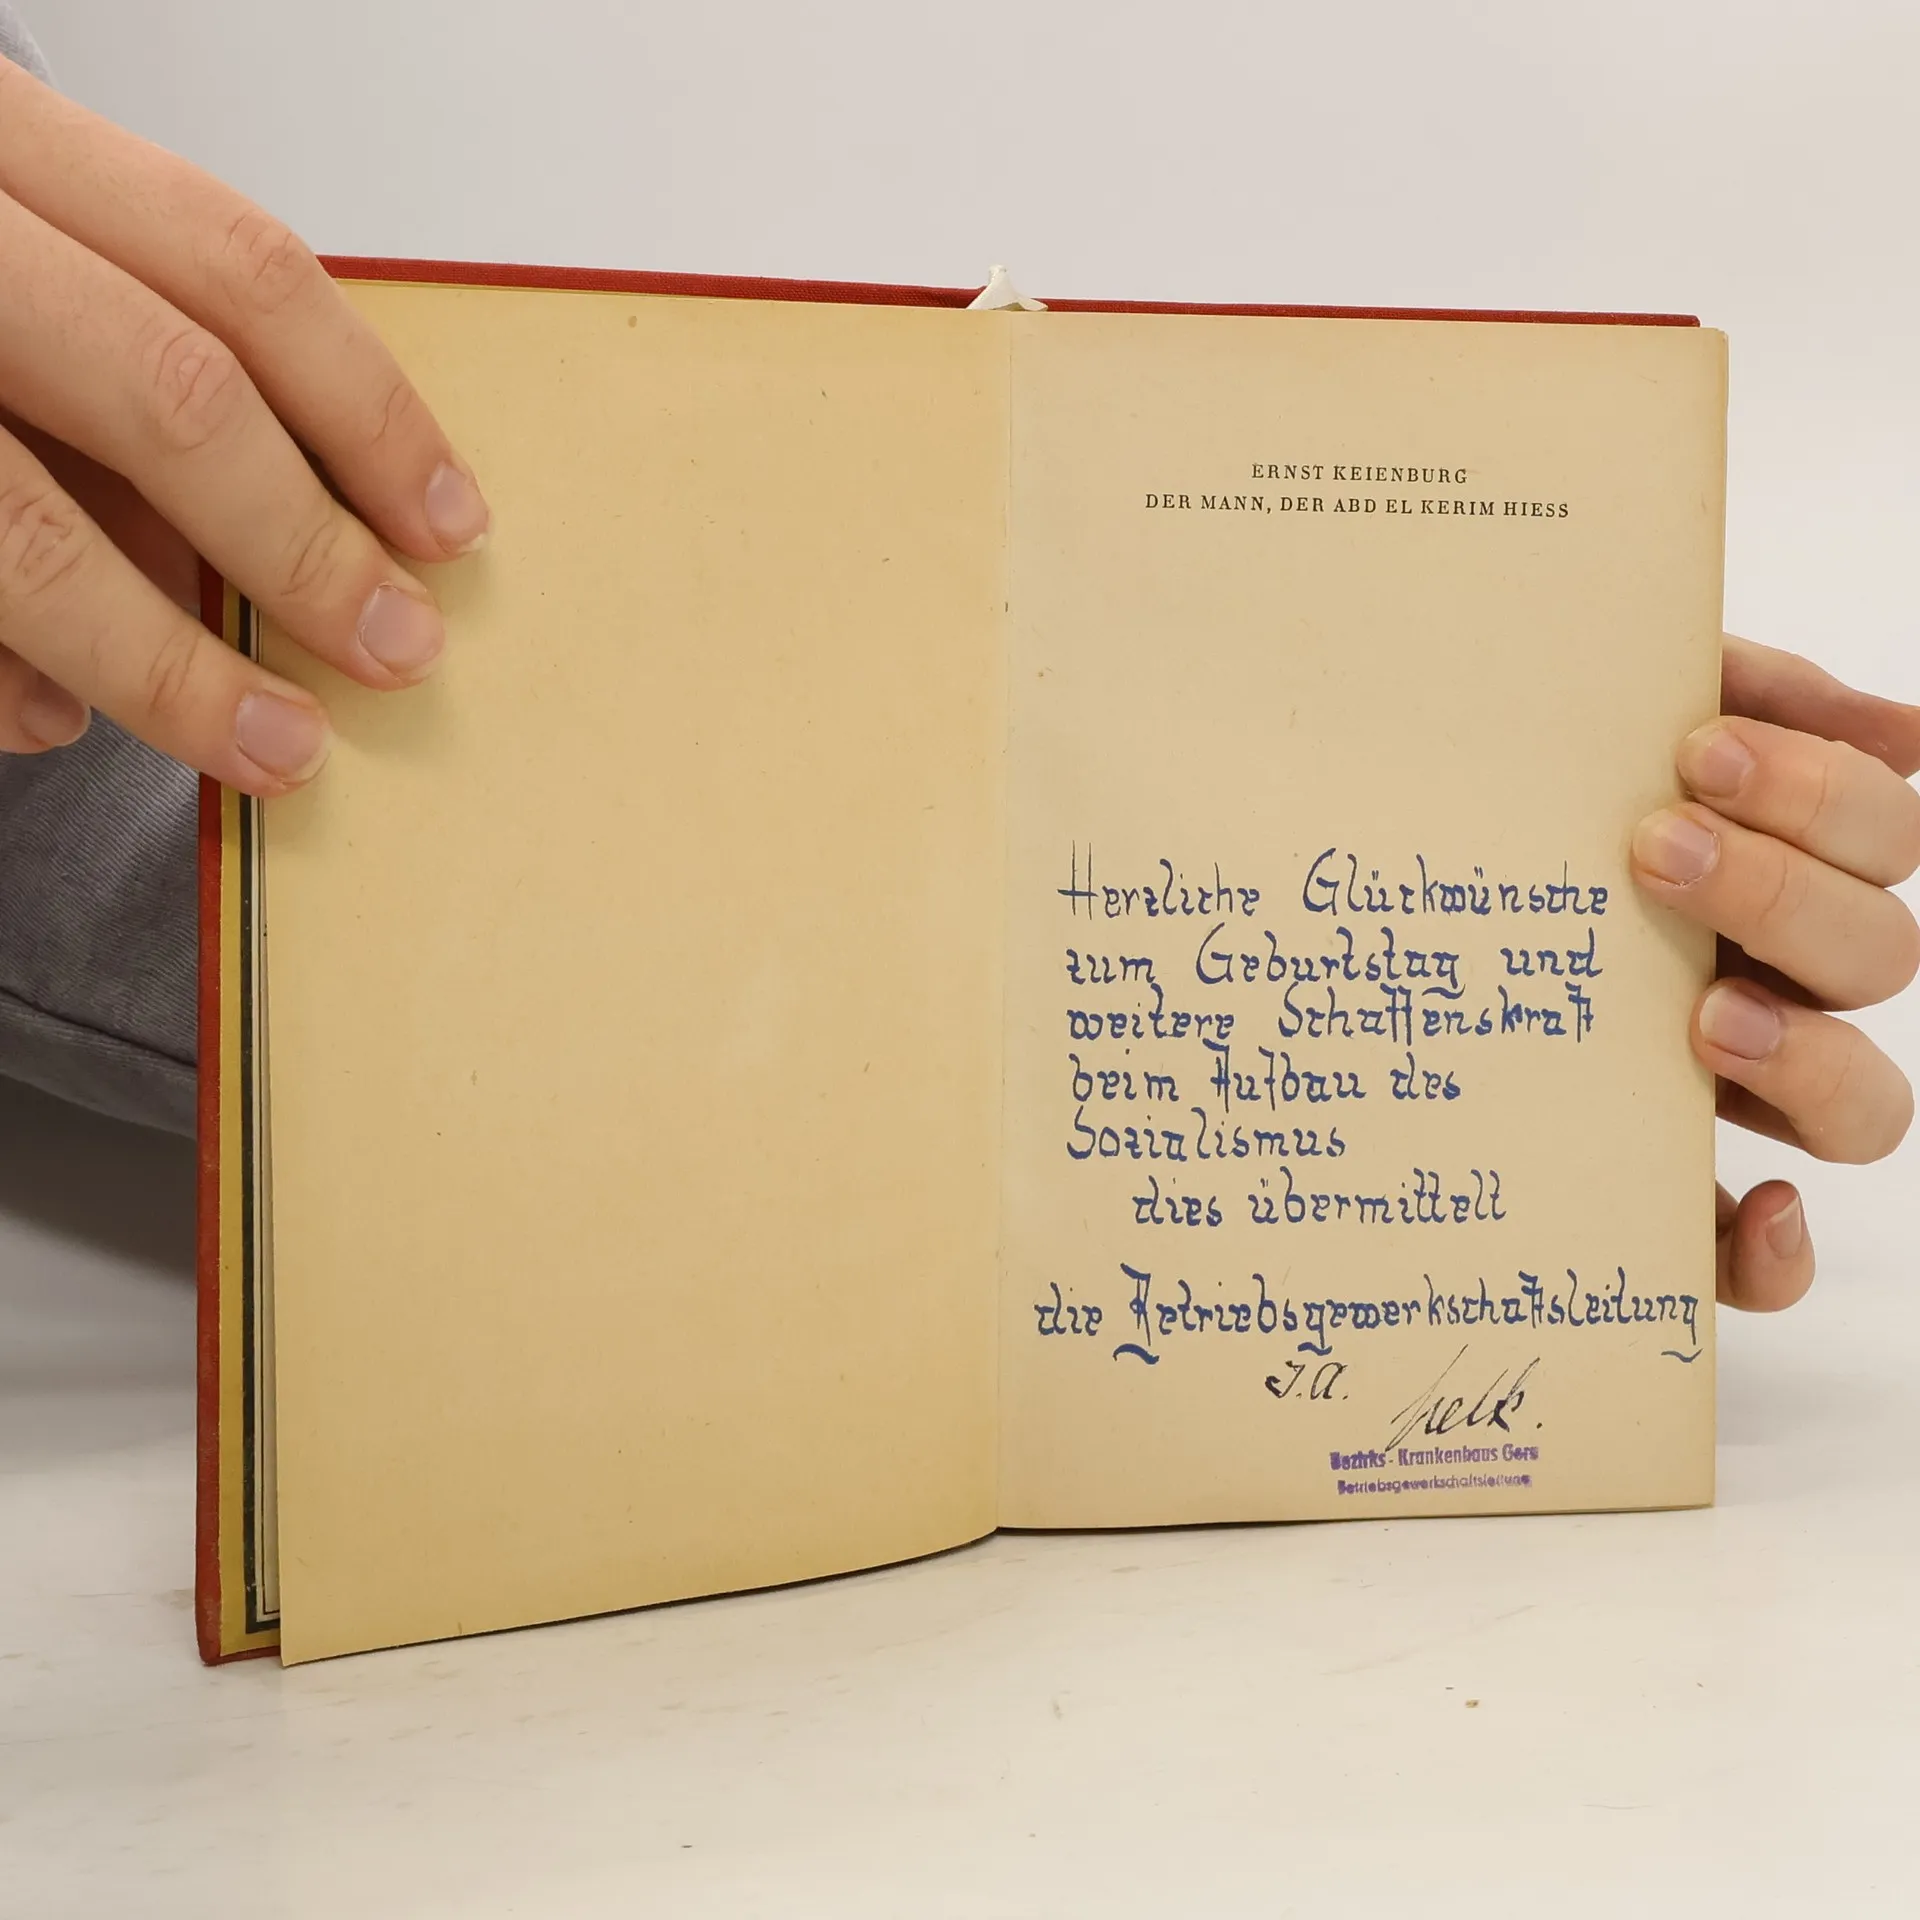 ERNST KEIENBURG
DER MANN, DER ABD EL KERIM HIESS
Herzliche Glückwünsche
zum Geburtstag und
weitere Schaffenskraft
beim Aufbau des
Sozialismus
dies übermittelt
die Betriebsgewerkschaftsleitung
I.A.
Bezirks-Krankenhaus Gera
Betriebsgewerkschaftsleitung